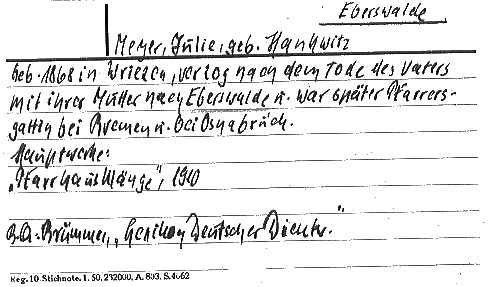 Eberswalde
Meyer, Julie, geb. Hankwitz
Geb. 1868 in Wriezen, verzog nach dem Tode des Vaters
mit ihrer Mutter nach Eberswalde u. war später Pfarrers-
gattin bei Bremen u. bei Osnabrück.
Hauptwerke:
"Pfarrhausklänge", 1910
Brümmer, "Lexikon Deutscher Dichter."
Reg. 10. Stichnote. 1. 50. 232000. A. 803. S. 4662